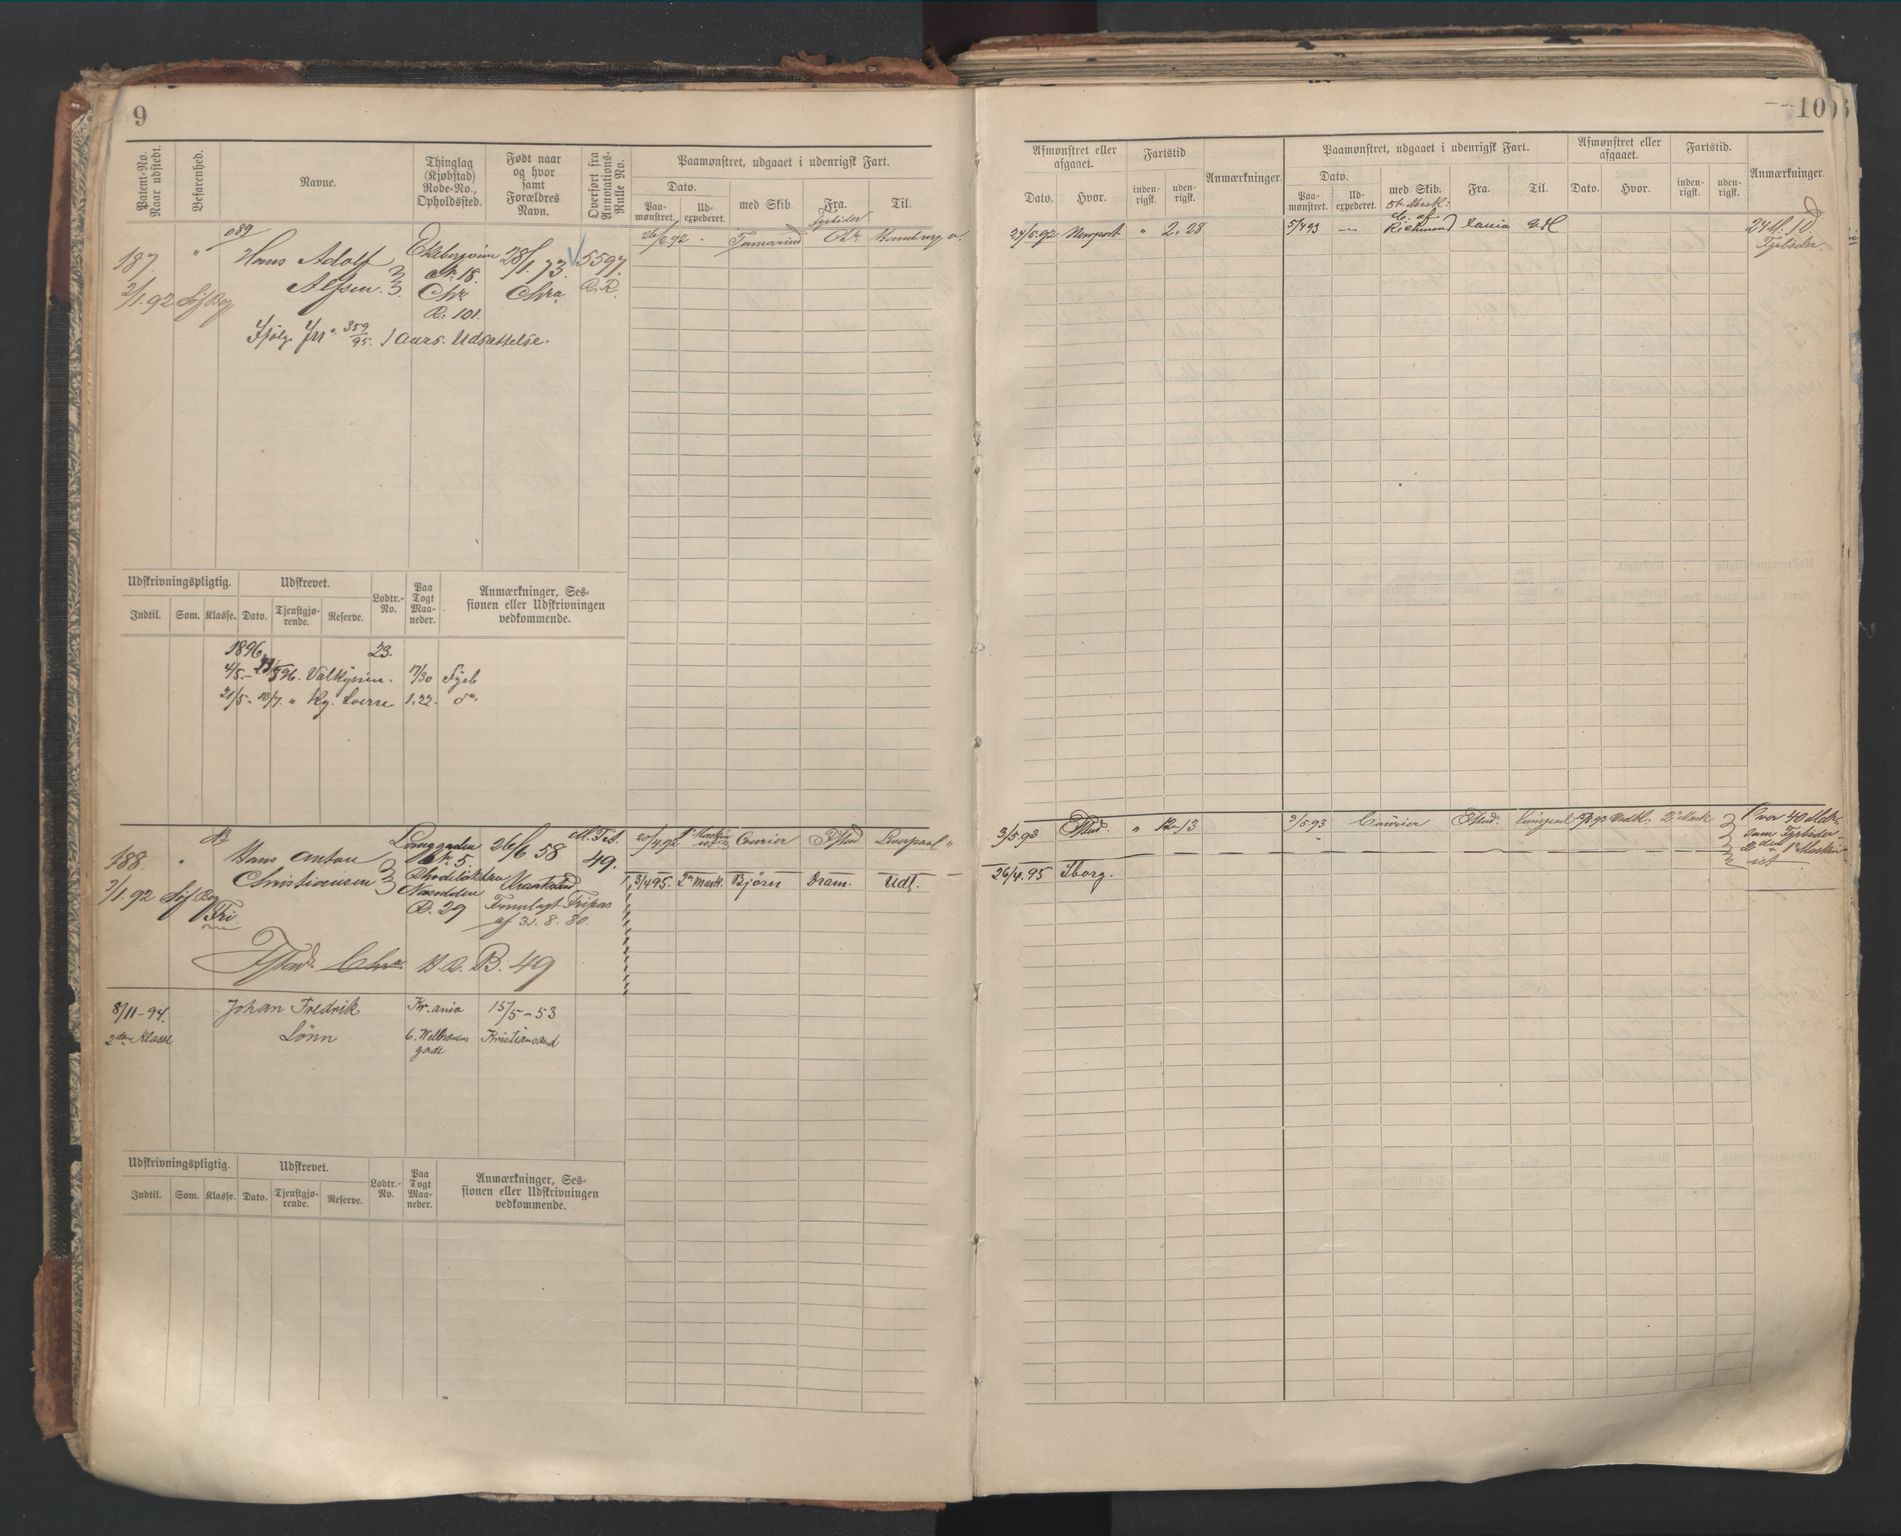 9
Patent-No. Naar udstedt.
Befarenhed.
Navne.
Thinglag (Kjøbstad) Rode-No., Opholdssted.
Født naar og hvor samt Forældres Navn.
Overført fra Annotations-Rulle No.
Paamønstret, udgaaet i udenrigsk Fart.
Dato.
Paamønstret.
Udexpederet.
med Skib.
Fra.
Til.
187
2/1.92
"
089
Hans Adolf
Alfsen.
No. 18.
Chr
R. 101.
28/1.73.
Chra
5597.
R.R.
26/2.92
Tamarind
Fyrbøder
Chr.
Ifølge Jr. 359/95. 1 Aars. Udsættelse.
Udskrivningspligtig.
Udskrevet.
Lodtr.-No.
Paa Togt Maaneder.
Anmærkninger, Sessionen eller Udskrivningen vedkommende.
Indtil.
Som.
Klasse.
Dato.
Tjenstgjørende.
Reserve.
1896
23.
Valkyrien.
17/30
Fyrb
21/5 - 13/7. " Kg. Sverre
1.22.
do.
188.
2/1.92
Hans Anton
Christiansen
No. 5.
Næsodden
R. 29
26/6 58
Fremlagt Fripas
af 31.8.80.
49.
Fri
20/4.92
Courier
Fstad
Liverpool "
3/4 95.
2n Mask.
Bjørn
Dram.
Udl.
Fstad. Chra. B. 49
8/11-94.
2den Klasse
Johan Fredrik
Lønn
Kr.ania
6. Welhavens
gade
15/5-53
Kristiansand
Udskrivningspligtig.
Udskrevet.
Lodtr.-No.
Paa Togt Maaneder.
Anmærkninger, Sessionen eller Udskrivningen vedkommende.
Indtil.
Som.
Klasse.
Dato.
Tjenstgjørende.
Reserve.
10
Afmønstret eller afgaaet.
Fartstid
Anmærkninger.
Paamønstret, udgaaet i udenrigsk Fart.
Afmønstret eller afgaaet.
Fartstid.
Anmærkninger.
Dato.
Hvor.
indenrigsk.
udenrigsk.
Dato.
Paamønstret.
Udexpederet.
med Skib.
Fra.
Til.
Dato.
Hvor.
indenrigsk.
udenrigsk.
24/5.92
Newport
"
2.28
5/4 93
C. of
Richmond
24 M. 1 D
Fyrbøder.
3/5.93
Fstad.
"
12-13
3/5.93
Courier
Fstad.
2n Mask
40 Mdr.
som Fyrbøder
26/4.95
Sborg.